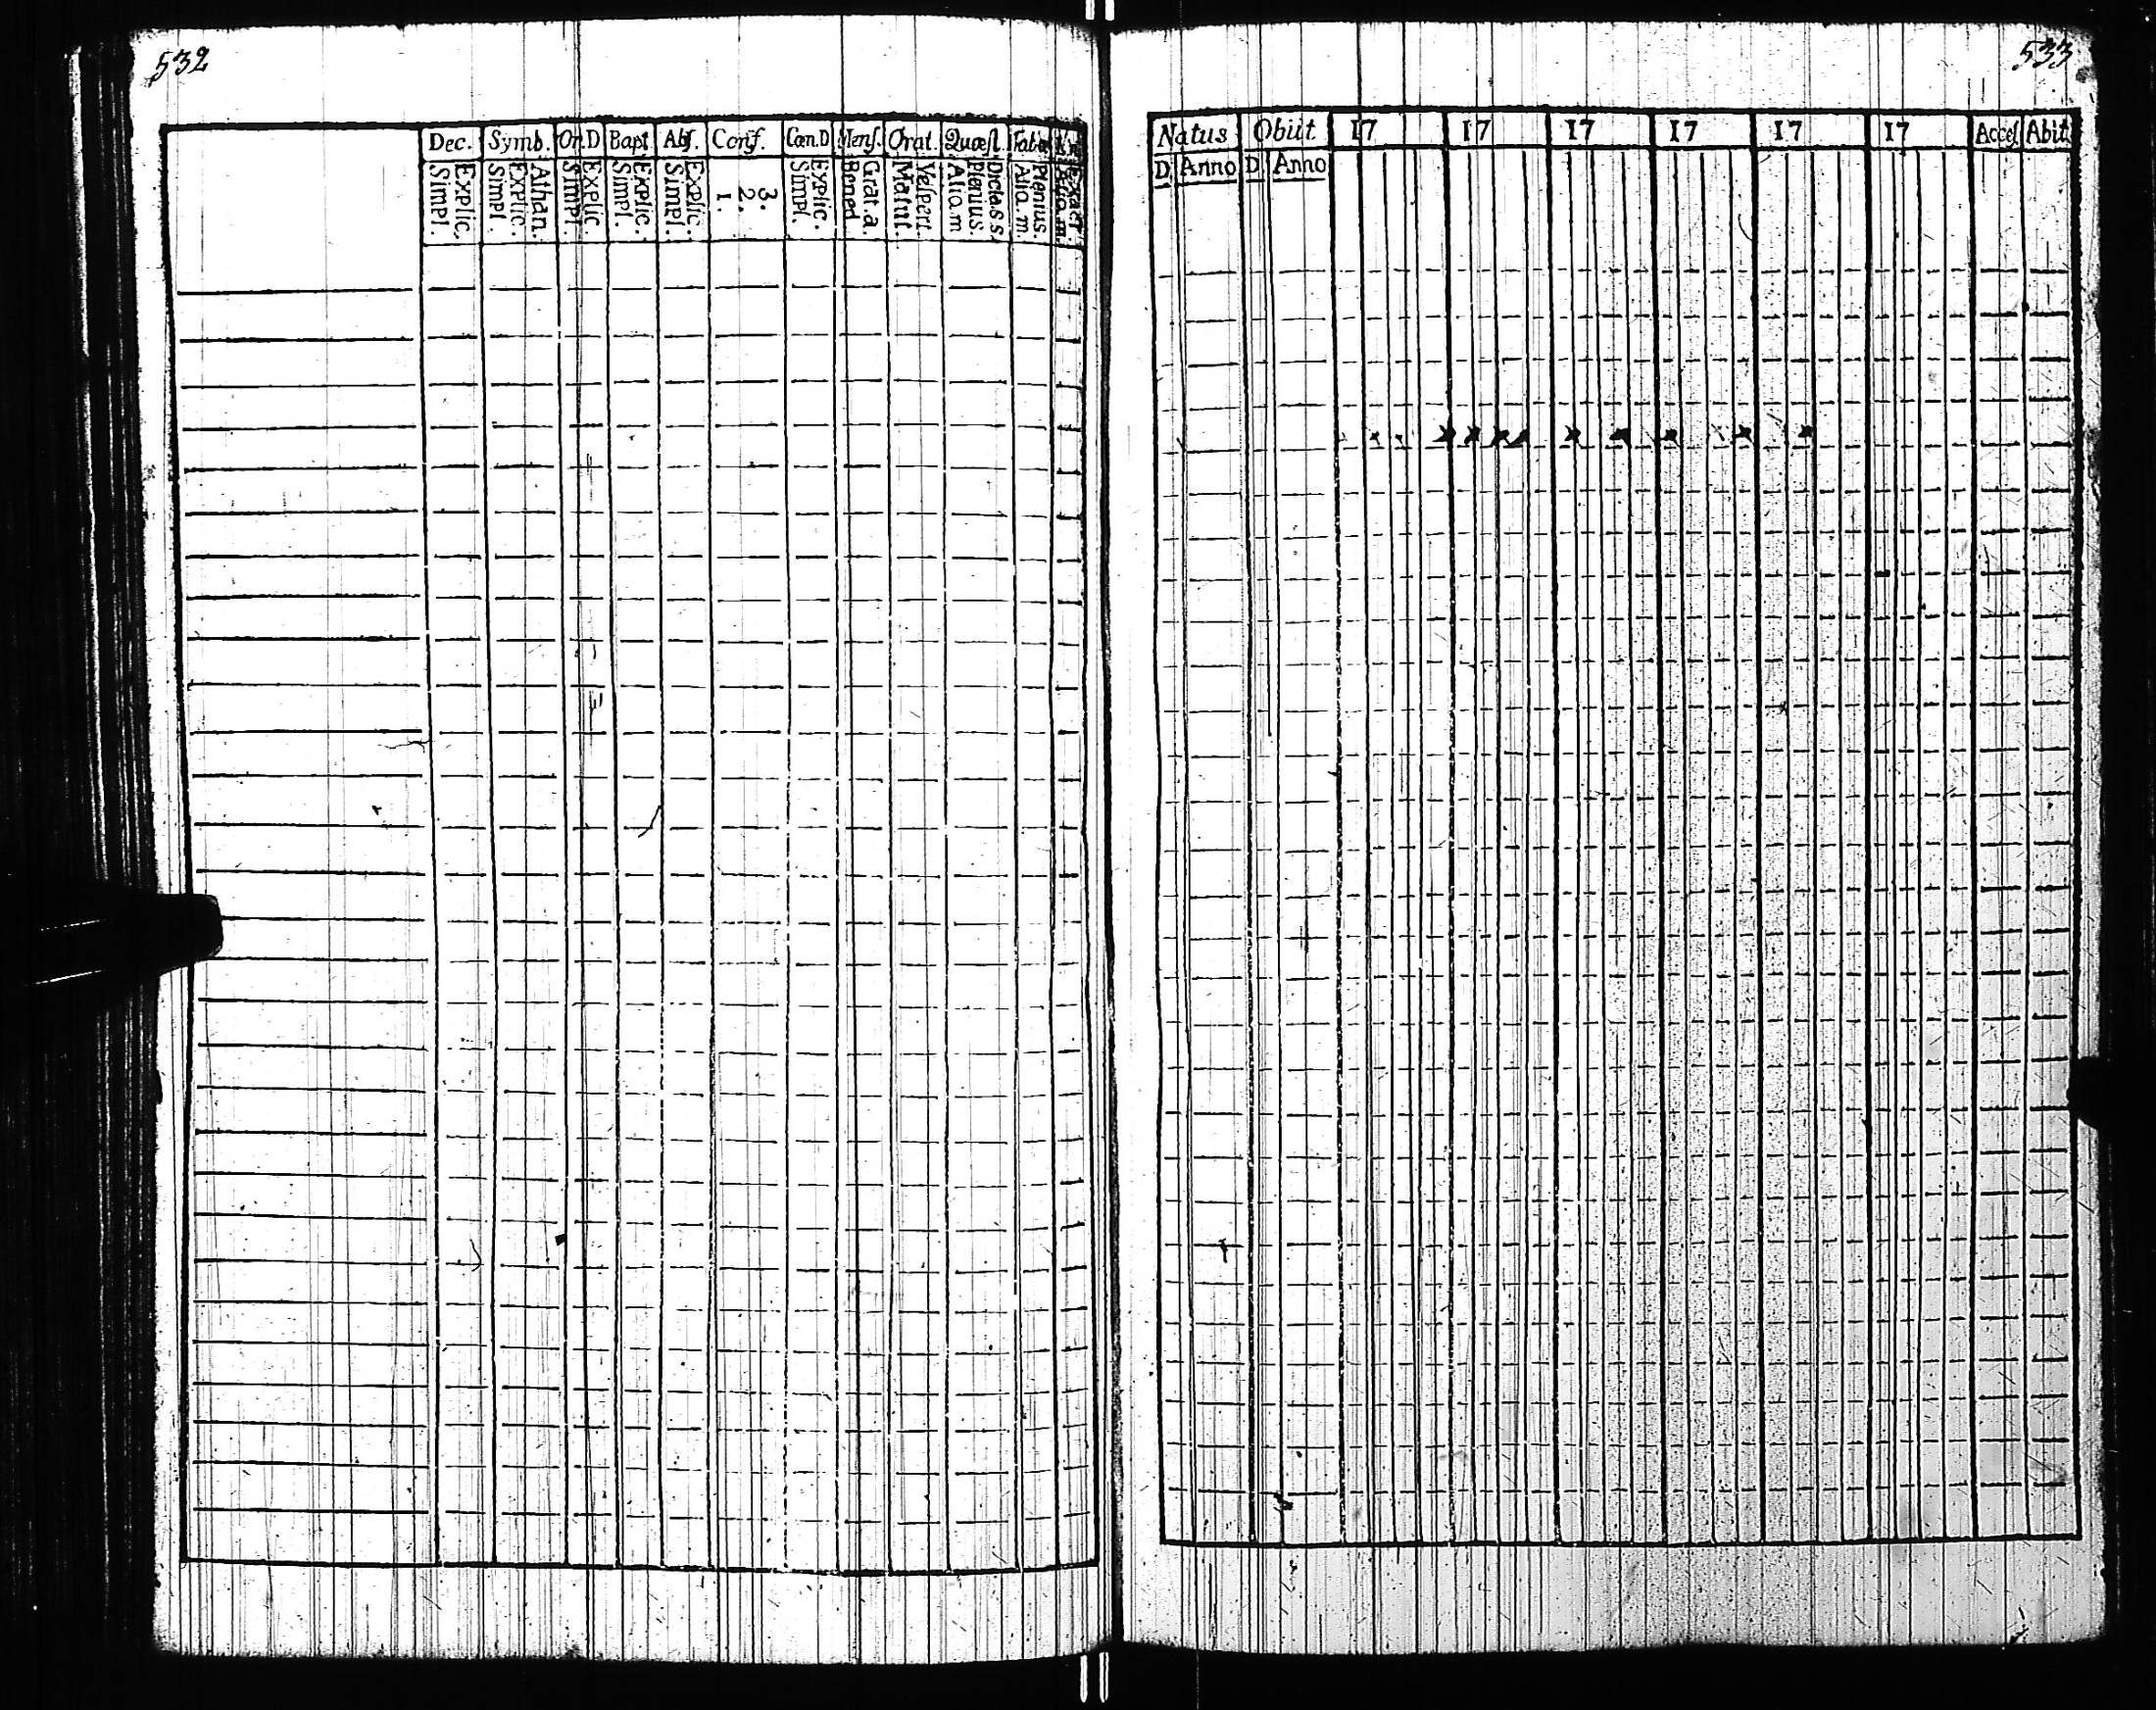 532
Dec. Symb. Or. D Bapt. Abſ. Conf. Cœn. D Menſ. Orat. Quæſt.
Explic. Simpl. Athan. Explic. Simpl. Explic. Simpl. Explic. Simpl. Explic. Simpl. 3. 2. 1. Explic. Simpl. Grat. a Bened Veſpert. Matut. Dicta s s. Plenius. Aliq. m Plenius. Aliq. m
533
Natus Obiit 17 17 17 17 17 17 Acceſ Abit
D Anno D Anno